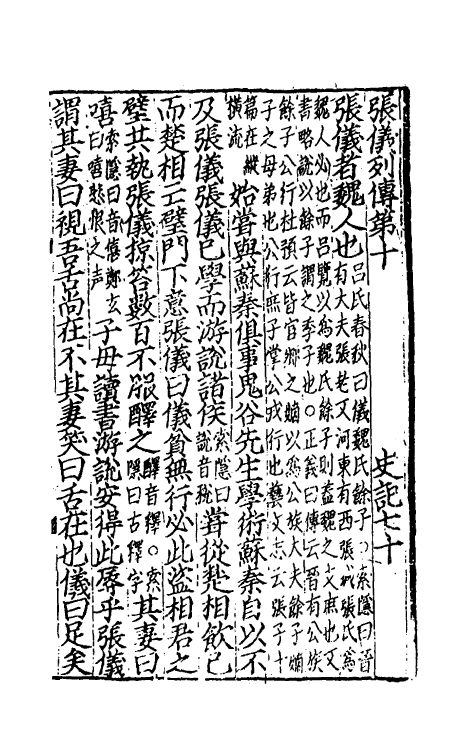 張儀列傳第十 史記七十
張儀者魏人也
呂氏春秋曰儀魏氏餘子○索隱曰晉
有大夫張老又河東有西張城張氏為
魏人必也而呂覽以為魏氏餘子則蓋魏之支庶也又
書略說以餘子謂之季子也○正義曰傳云晉有公族
餘子公行杜預云皆官卿之嫡以為公族大夫餘子嫡
子之母弟也公行庶子掌公戎行也藝文志云張子十
篇在縱
橫流
始甞與蘇秦俱事鬼谷先生學術蘇秦自以不
及張儀張儀已學而游說諸侯
索隱曰
說音稅
甞從楚相飲已
而楚相亡璧門下意張儀曰儀貧無行必此盜相君之
璧共執張儀掠笞數百不服醳之
醳音釋○索
隱曰古釋字
其妻曰
嘻
索隱曰音僖鄭玄
曰嘻悲恨之声
子毋讀書游說安得此辱乎張儀
謂其妻曰視吾舌尚在不其妻笑曰舌在也儀曰足矣